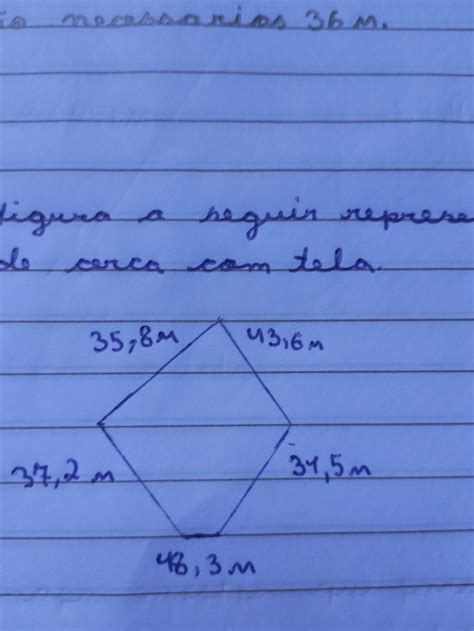 ão necessarios 36 m.
figura a seguir represe
de cerca com tela.
35,8 m
43,6 m
37,2 m
34,5 m
48,3 m